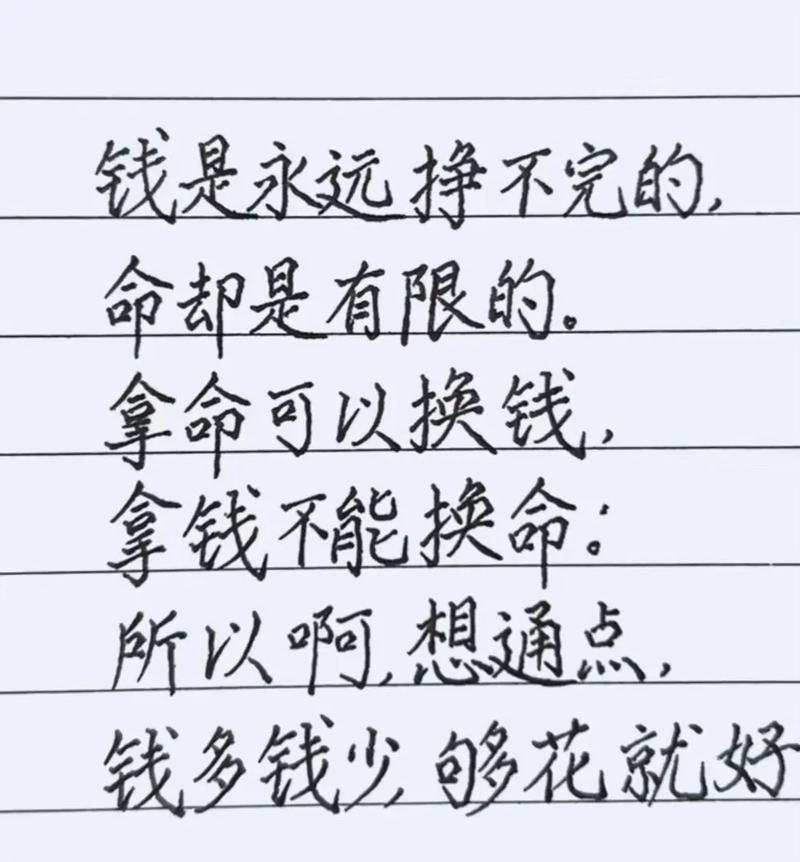 钱是永远挣不完的,
命却是有限的。
拿命可以换钱,
拿钱不能换命:
所以啊,想通点,
钱多钱少,够花就好